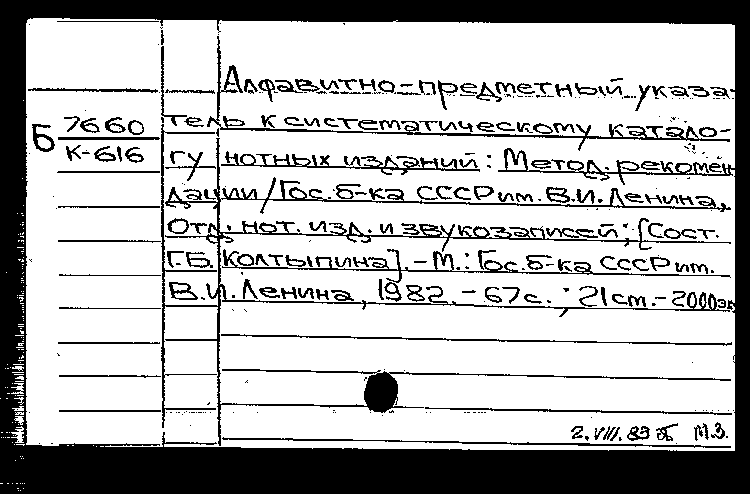 Алфавитно-предметный указа-
Б 7660
К-616
тель к систематическому катало-
гу нотных изданий: Метод. рекомен
дации/Гос. б-ка СССР им. В.И. Ленина,
Отд. нот. изд. и звукозаписей; [Сост.
Г.Б. Колтыпина]. - М.: Гос. б-ка СССР им.
В.И. Ленина, 1982. - 67с. ; 21 cm. - 2000 эк
2.VIII.83 М.З.